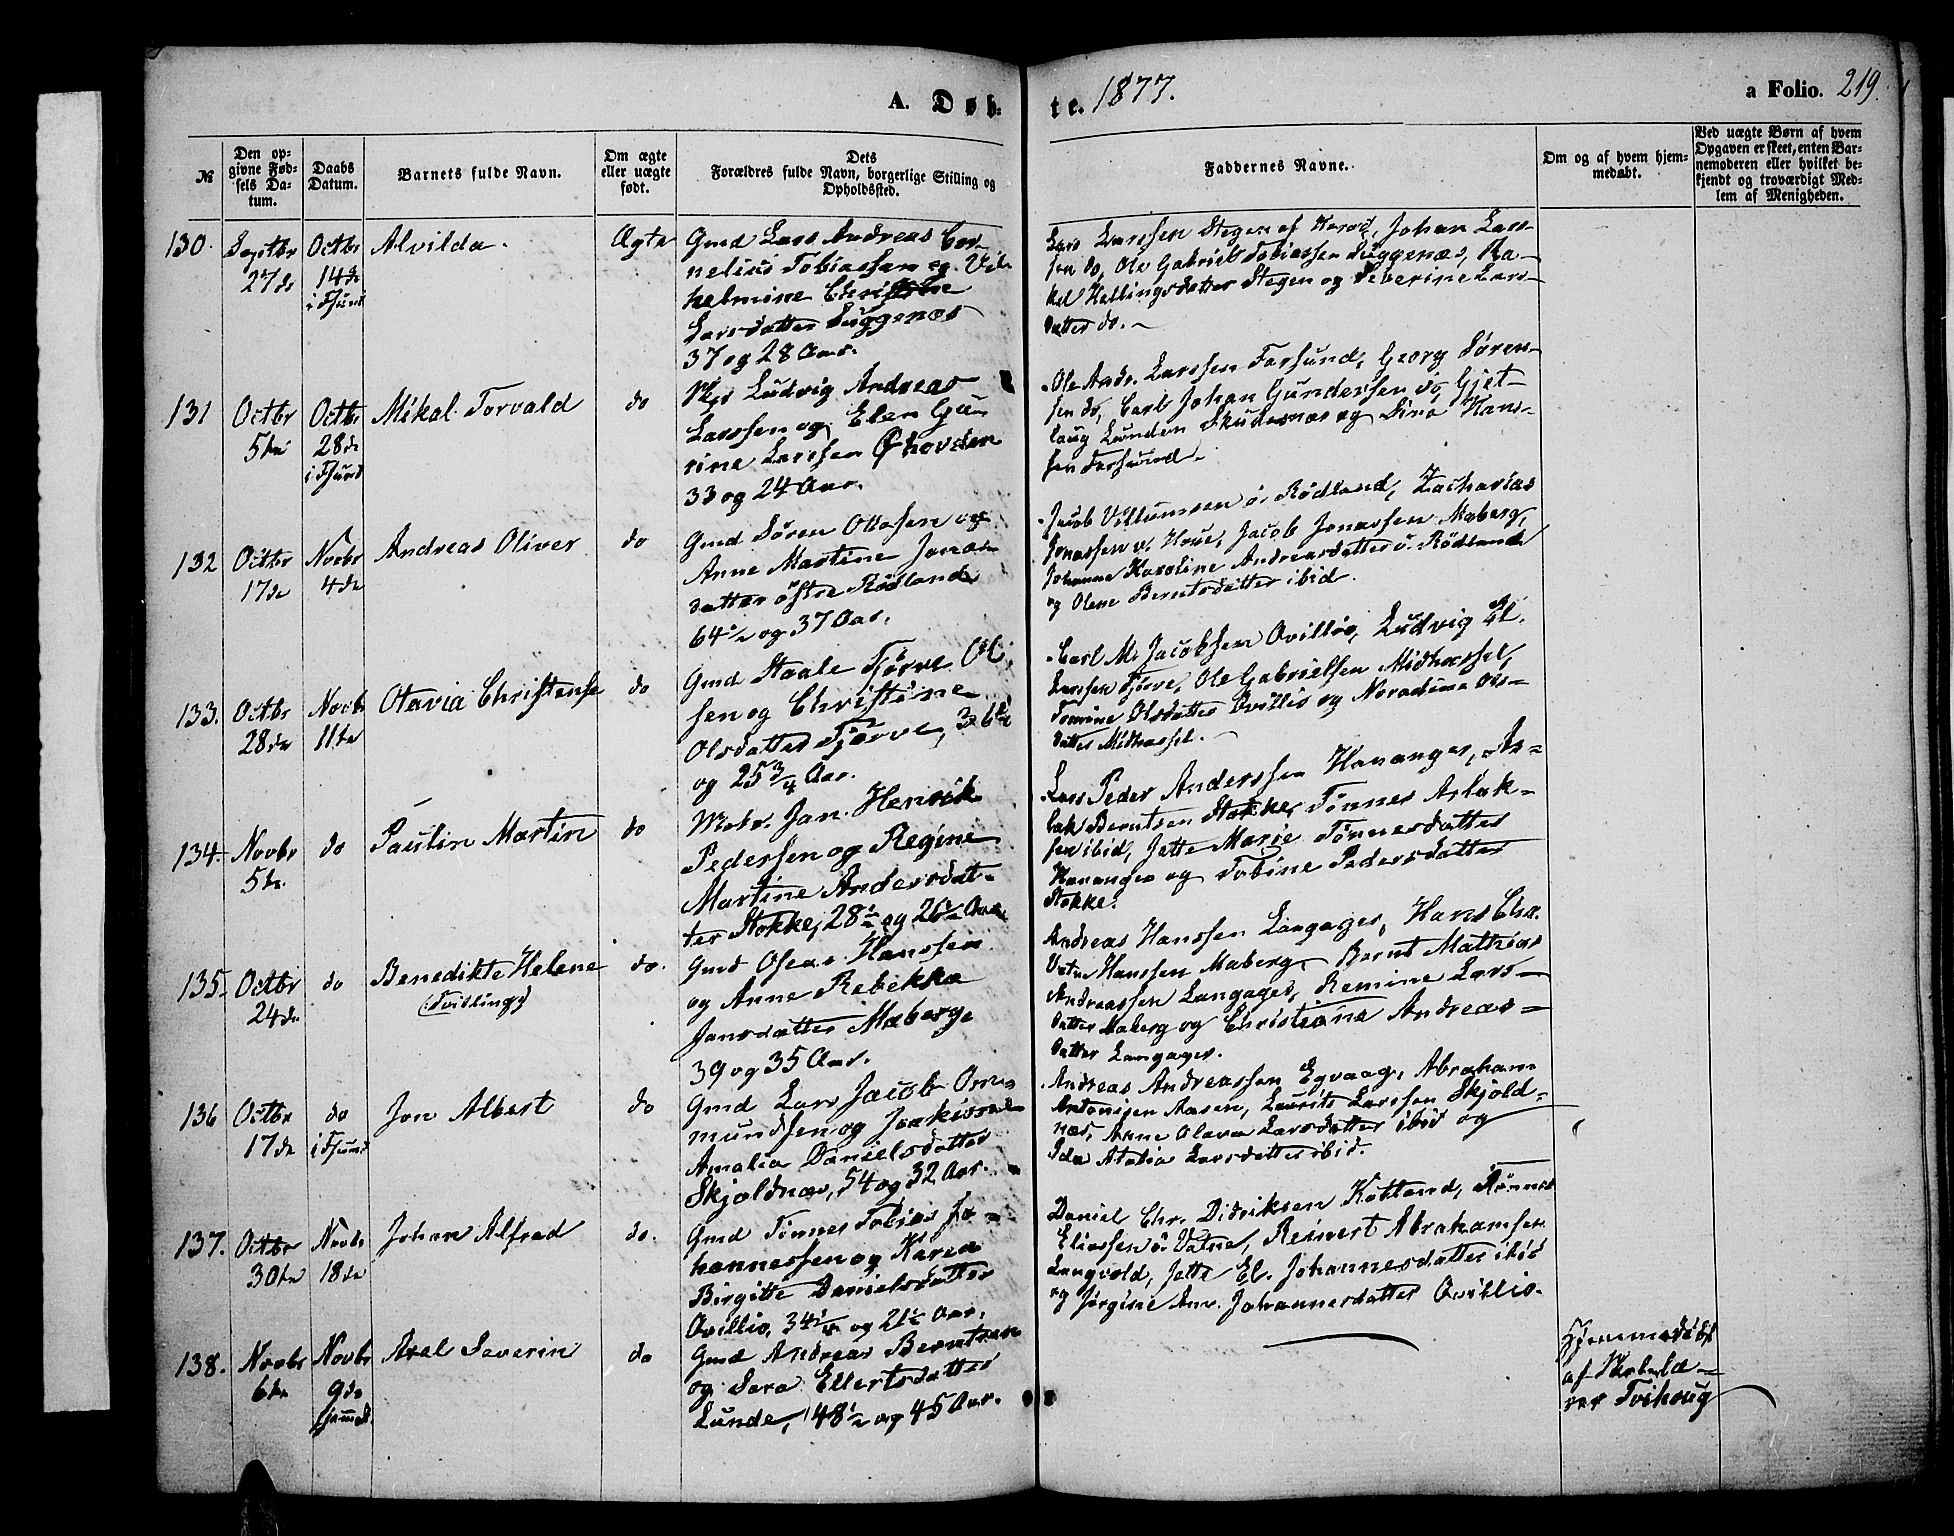 A. Døb-
te. 1877.
a Folio. 219.
№
Den op-
givne Fød-
sels Da-
tum.
Daabs
Datum.
Barnets fulde Navn.
Om ægte
eller uægte
født.
Dets
Forældres fulde Navn, borgerlige Stilling og
Opholdssted.
Faddernes Navne.
Om og af hvem hjem-
medøbt.
Ved uægte Børn af hvem
Opgaven er skeet, enten Bar-
nemoderen eller hvilket be-
kjendt og troværdigt Med-
lem af Menigheden.
130.
Septbr
27de
Octbr
14de
i Fsund
Alvilda.
Ægte
Gmd Lars Andreas Cor-
nelius Tobiassen og Vil-
helmine Christine
Larsdatter Luggenæs
37 og 28 Aar.
Lars Larssen Stegen af Herad, Johan Lars-
sen do, Ole Gabriel Tobiassen Luggenæs, Ra-
kel Hellingsdatter Stegen og Severine Lars-
datter do.
131
Octbr
5te
Octbr
28de
i Fsund
Mikal Torvald
do
Ludvig Andreas
Larssen og Elen Gu-
rine Larssen Øhovden
33 og 24 Aar.
Ole Andr. Larssen Farsund, Georg Søren-
sen do, Carl Johan Gundersen do, Gjet-
laug Lunden Skudesnæs og Dina Han-
sen Farsund.
132
Octbr
17de
Novbr
4de
Andreas Oliver
do
Gmd Søren Ottosen og
Anne Martine Jonas-
datter østre Rødland
64½ og 37 Aar.
Jacob Villumsen ø. Rødland, Zacharias
Jonassen v. Houe, Jacob Jonassen Maberg,
Johanne Karoline Andreasdatter ø. Rødland
og Olene Berntsdatter ibid.
133.
Octbr
28de
Novbr
11te
Otavia Christense
do
Gmd Staale Tjørve Ol-
sen og Christine
Olsdatter Tjørve, 36½
og 25 3/4 Aar.
Carl M. Jacobsen Ovillio, Ludvig El.
Larssen Tjørve, Ole Gabrielsen Midhassel,
Tomine Olsdatter Ovillio og Noradina Ols-
datter Midhassel.
134.
Novbr
5te
do
Paulin Martin
do
Matr. Jan Henrik
Pedersen og Regine
Martine Andersdat-
ter Stokke, 28½ og 26½ Aar
Lars Peder Anderssen Hananger, As-
lak Berntsen Stokke, Tønnes Aslak-
sen ibid, Jette Marie Tønnesdatter
Hananger og Tobine Pedersdatter
Stokke.
135.
Octbr
24de
do
Benedikte Helene
(Tvilling)
do.
Gmd Osear Hanssen
og Anne Rebekka
Jansdatter Maberg
39 og 35 Aar.
Andreas Hanssen Langager, Hans Elia.
Vatne Hanssen Maberg, Bernt Mathias
Andreassen Langager, Remine Lars-
datter Maberg og Christiane Andreas-
datter Langager.
136
Octbr
17de
do
i Fsund
Jon Albert
do
Gmd Lars Jacob Om-
mundsen og Joakime
Amalia Danielsdatter
Skjoldnæs, 54 og 32 Aar.
Andreas Andreassen Egvaag, Abraham
Antonisen Aasen, Laurits Larssen Skjold-
næs, Anne Olava Larsdatter ibid og
Ida Atalia Larsdatter ibid.
137.
Octbr
30te
Novbr
18de
Johan Alfred
do.
Gmd Tønnes Tobias Jo-
hannessen og Karen
Birgitte Danielsdatter
Ovillio, 34½ og 21½ Aar.
Daniel Chr. Didriksen Kotland, Tønnes
Eliassen ø. Vatne, Reinert Abrahamsen
Langvold, Jette El. Johannesdatter ibid
og Jørgine Ane. Johannesdatter Ovillio.
138.
Novbr
6te
Novbr
9de
Axel Severin
do
Gmd Andreas Berntsen
og Sara Ellertsdatter
Lunde, 48½ og 45 Aar.
Hjemmedøbt
af Skolelæ-
rer Tvihoug